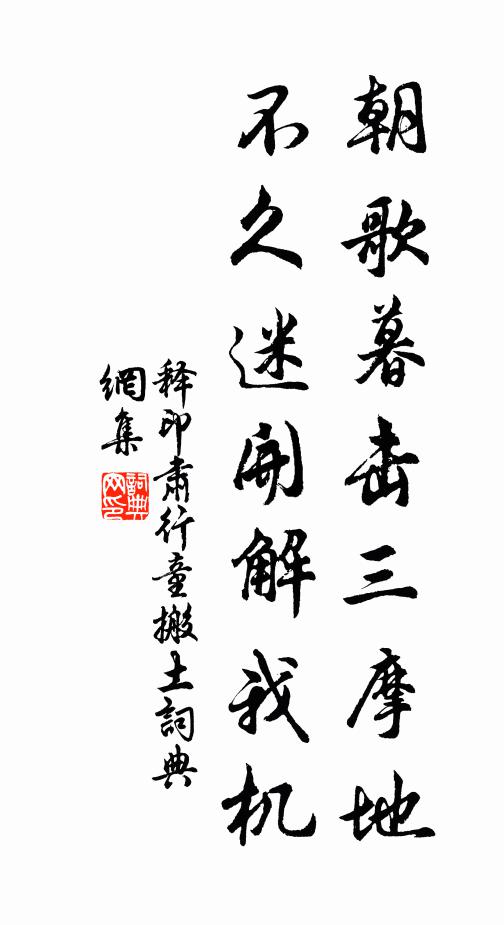 朝歌暮击三摩地
不久迷開解我机
释印肃行童搬土詞典
網集
詞典网印